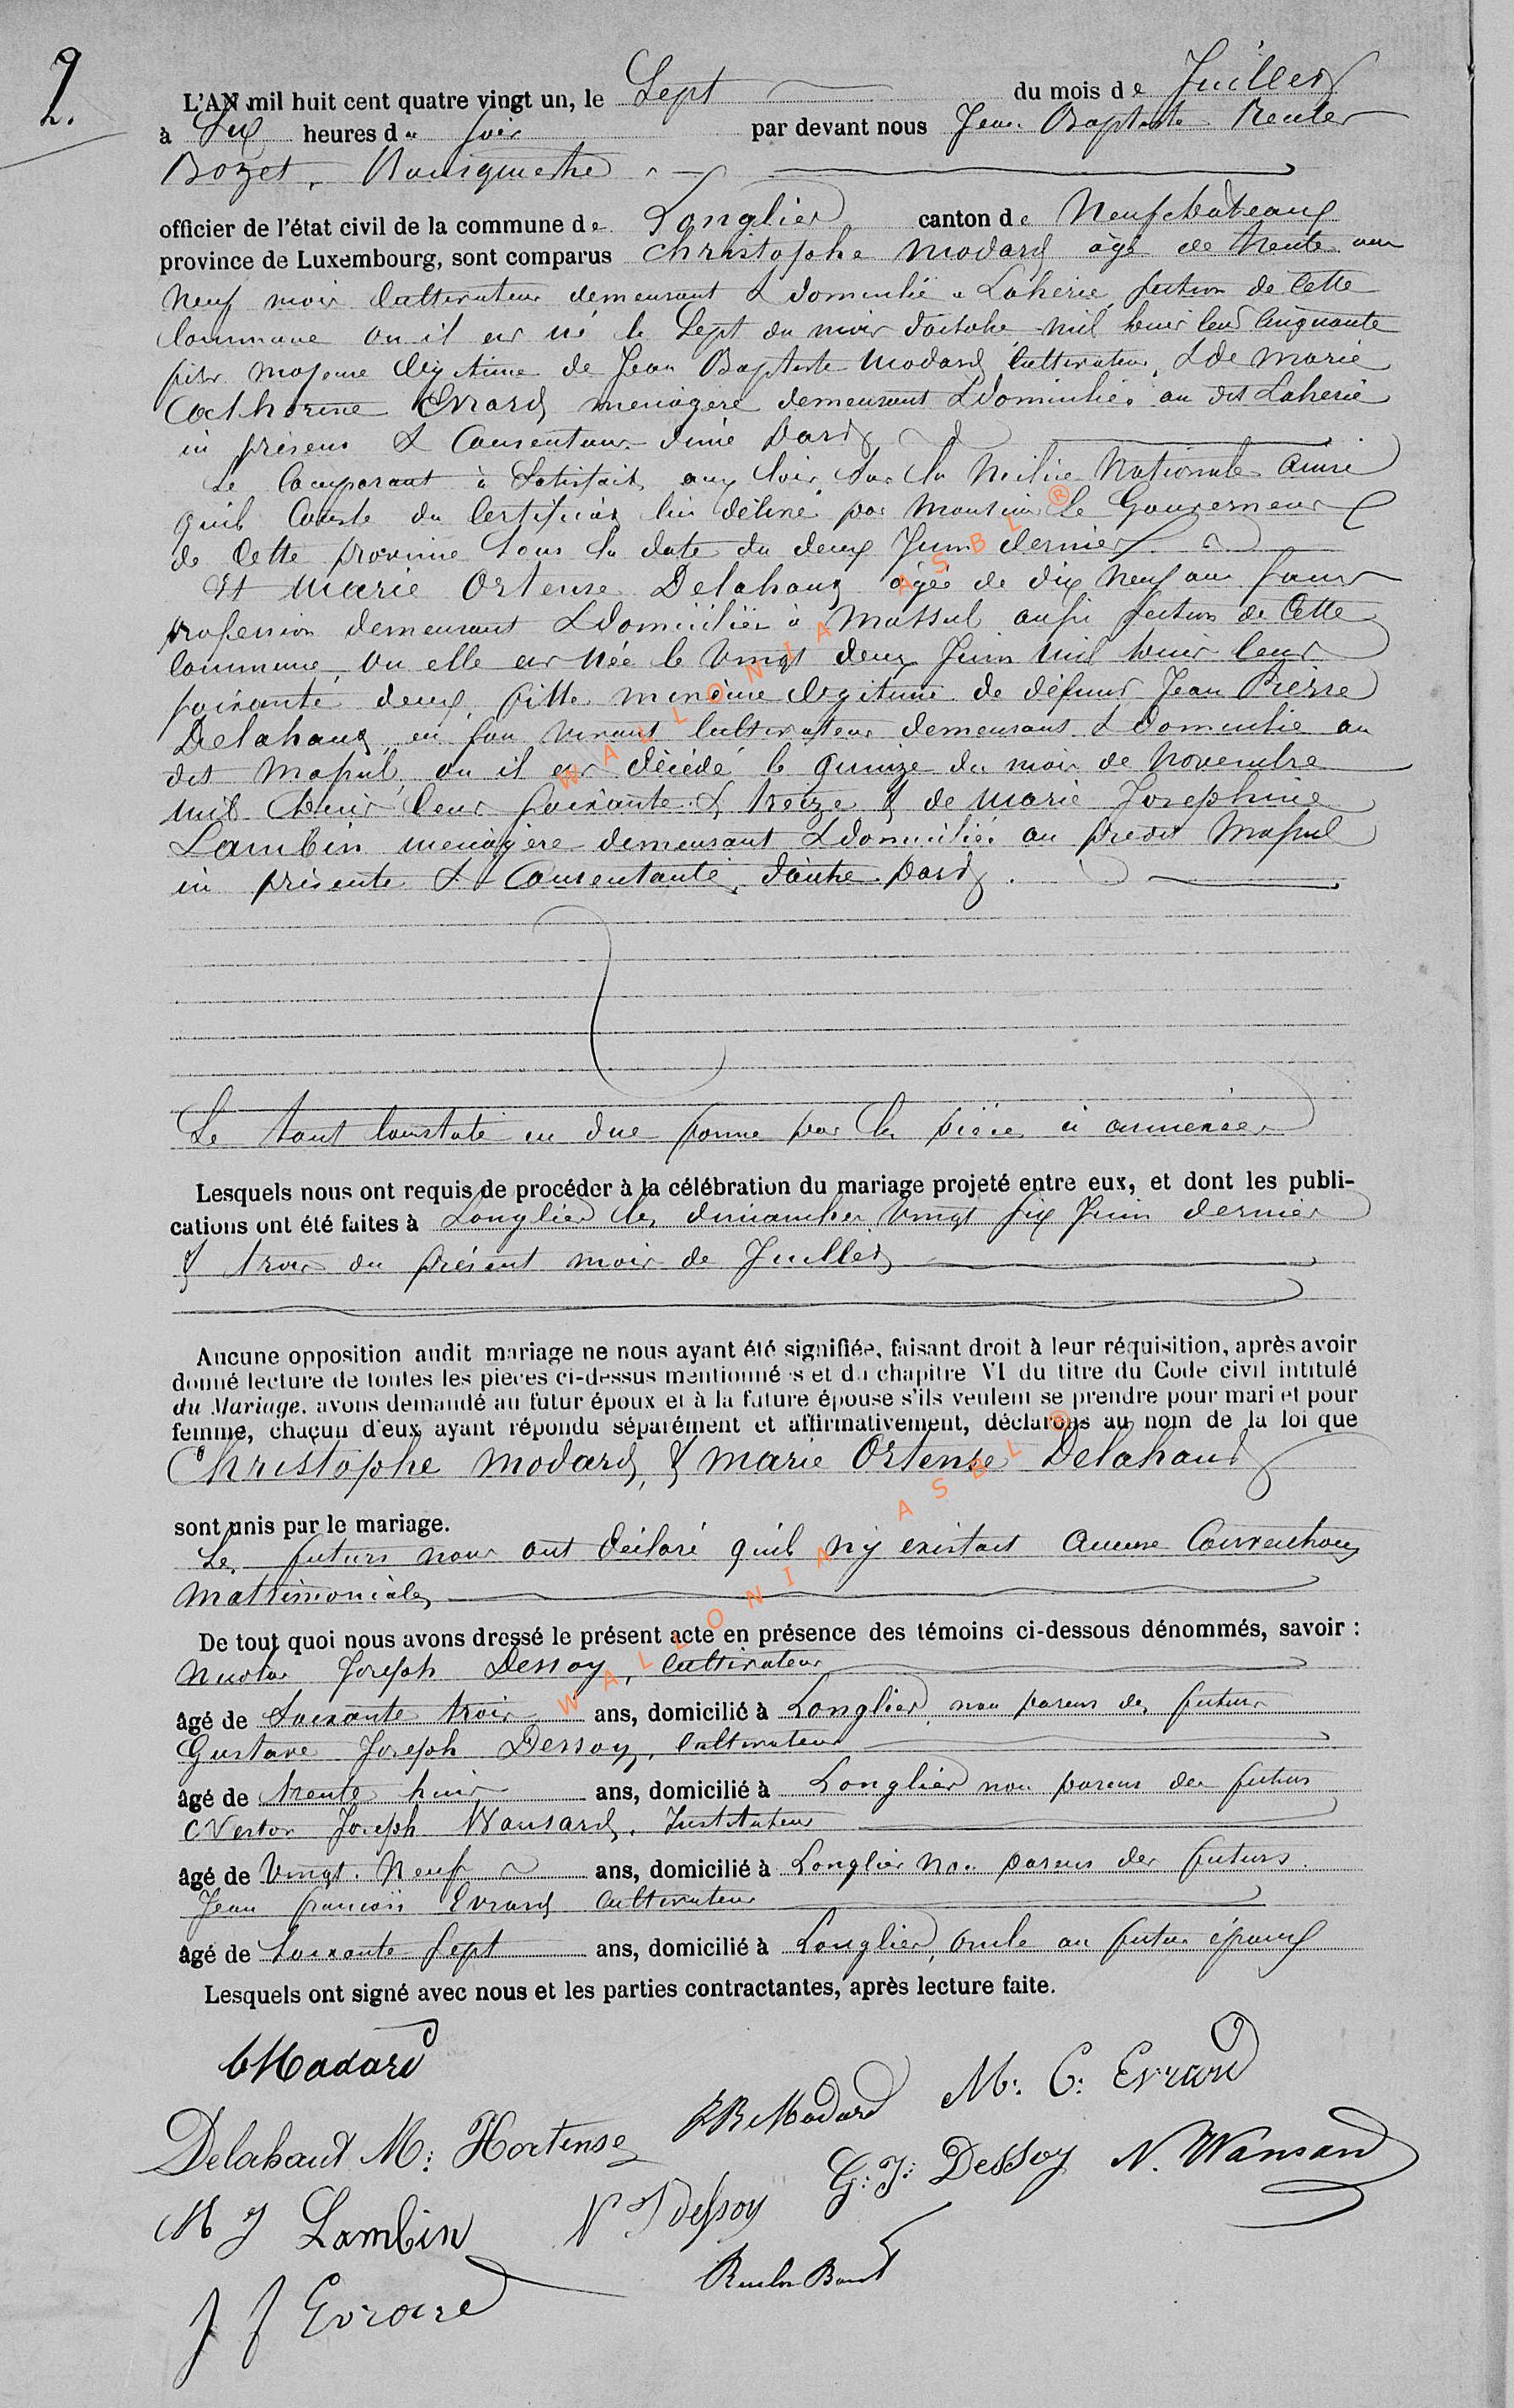 2.
L'AN mil huit cent quatre vingt un, le Sept du mois de Juillet
à Six heures du soir par devant nous Jean Baptiste Reuler
Bozet, Bourgmestre
officier de l'état civil de la commune de Longlier canton de Neufchateaux
province de Luxembourg, sont comparus Christophe Modard âgé de trente ans
neuf mois cultivateur demeurant & domicilié à Laherie section de cette
commune où il est né le Sept du mois d'octobre mil huit cent cinquante
fils majeur légitime de Jean Baptiste Modard cultivateur, & de Marie
Catherine Evrard, ménagère demeurant & domiciliés au dit Laherie
ici présens & Consentans d'une part
Le Comparant à Satisfait aux lois sur la Milice Nationale ainsi
qu'il Conste du Certificat lui délivré par Monsieur Le Gouverneur
de Cette province sous la date du deux Juin dernier
Et Marie Ortense Delahaut âgée de dix neuf ans sans
profession demeurant & domiciliée à Massul aussi section de Cette
commune, où elle est née le vingt deux Juin mil huit cent
soixante deux, fille mineure légitime de défunt Jean Pierre
Delahaut en son vivant cultivateur demeurant & domicilié au
dit Massul, où il est décédé le quinze du mois de Novembre
mil huit cent soixante & treize & de Marie Josephine
Lambin ménagère demeurant & domiciliée au prédit Massul
ici présente & Consentante, d'autre part.
Le tout constaté en due forme par les pièces ci annexées
Lesquels nous ont requis de procéder à la célébration du mariage projeté entre eux, et dont les publi-
cations ont été faites à Longlier les dimanches vingt six Juin dernier
& trois du présent mois de Juillet
Aucune opposition audit mariage ne nous ayant été signifiée, faisant droit à leur réquisition, après avoir
donné lecture de toutes les pièces ci-dessus mentionnées et du chapitre VI du titre du Code civil intitulé
du Mariage, avons demandé au futur époux et à la future épouse s'ils veulent se prendre pour mari et pour
femme, chacun d'eux ayant répondu séparément et affirmativement, déclarons au nom de la loi que
Christophe Modard, & Marie Ortense Delahaut
sont unis par le mariage.
Les futurs nous ont déclaré qu'il n'y existait aucune Conventions
Matrimoniales
De tout quoi nous avons dressé le présent acte en présence des témoins ci-dessous dénommés, savoir :
Nicolas Joseph Dessoy, Cultivateur
âgé de Soixante trois ans, domicilié à Longlier, non parent des futurs
Gustave Joseph Dessoy, Cultivateur
âgé de trente huit ans, domicilié à Longlier non parent des futurs
Nestor Joseph Wansard, Instituteur
âgé de Vingt-Neuf ans, domicilié à Longlier non parent des futurs.
Jean François Evrard Cultivateur
âgé de Soixante Sept ans, domicilié à Longlier, oncle au futur époux
Lesquels ont signé avec nous et les parties contractantes, après lecture faite.
C Modard
JB Modard M: C: Evrard
Delahaut M: Hortense
G: J: Dessoy N. Wansard
M J Lambin N J dessoy
J F Evrard
WALLONIA ASBL ®
WALLONIA ASBL ®